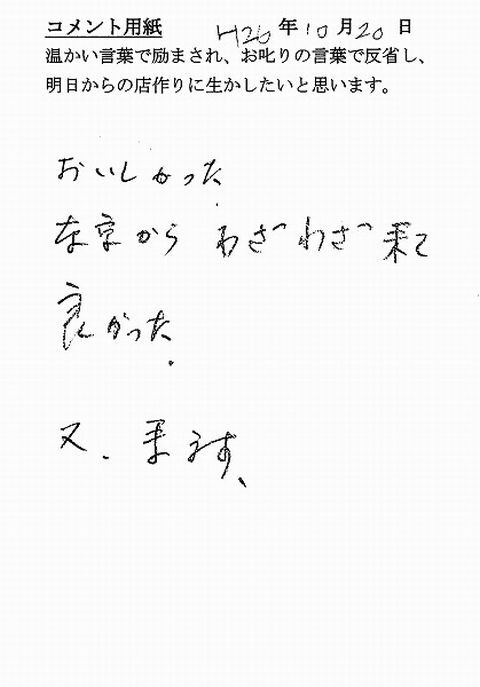 コメント用紙 H26年10月20日
温かい言葉で励まされ、お叱りの言葉で反省し、
明日からの店作りに生かしたいと思います。
おいしかった
東京から わざわざ来て
良かった.
又、来ます、